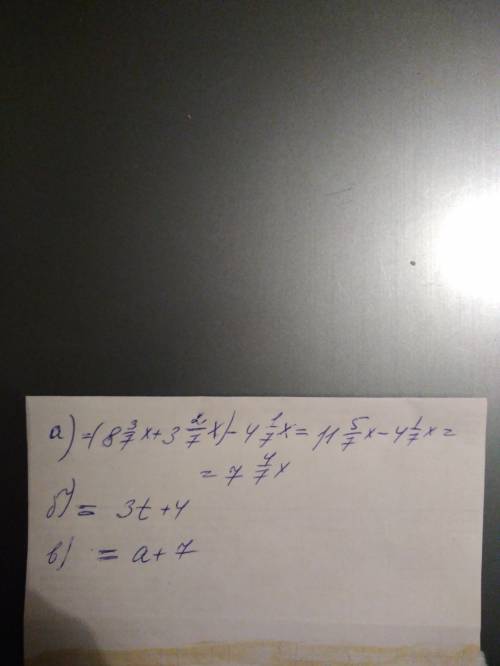 а) =(8 3/7 x+3 2/7 x)-4 1/7 x= 11 5/7 x-4 1/7 x=
= 7 4/7 x
б) = 3t+4
в) = a+7